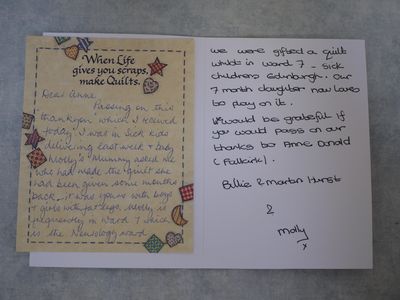 When Life
gives you scraps,
make Quilts.
Dear Anne,
Passing on this
"thankyou" which I received
today. I was in Sick Kids
delivering last week & baby
Molly's Mummy asked me
who had made the quilt she
had been given some months
back
with boys
& girls with
Molly is
frequently in Ward 7 which
is the Neurology ward
we were gifted a quilt
whilst in ward 7 - sick
childrens edinburgh. Our
7 month daughter now loves
to play on it.
Would be grateful if
you would pass on our
thanks to Anne Donald
(Falkirk).
Billie & Martin Hurst
&
Molly
x